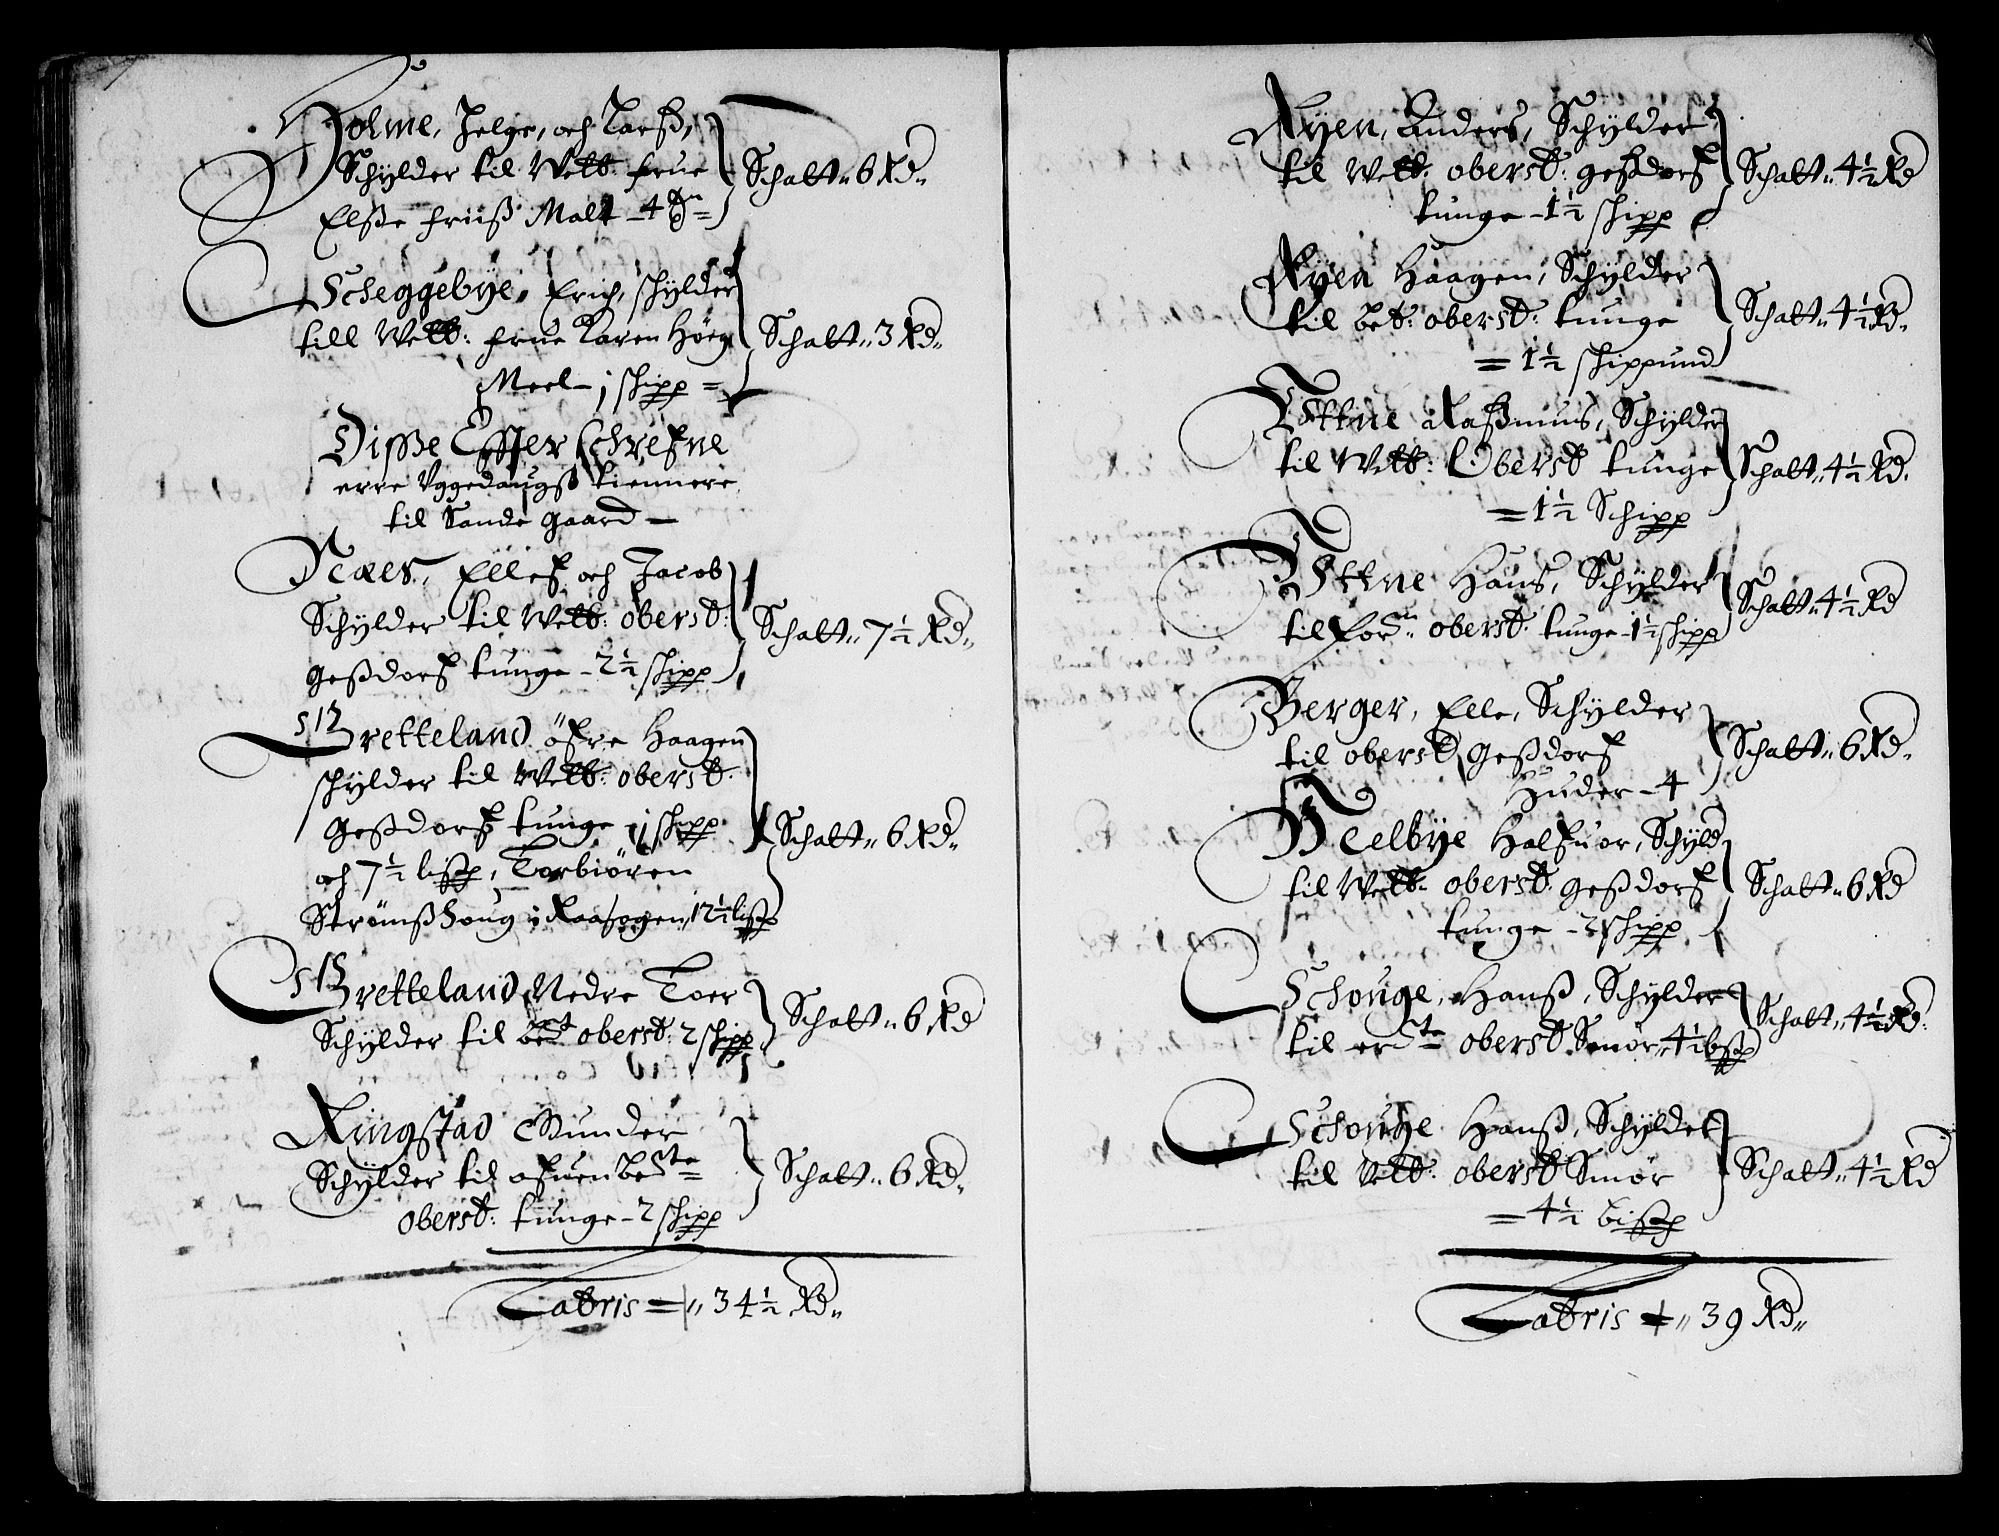 Holme, Helge, och Larß,
Schÿlder til Welb: frue
Elsße friiß Malt - 4 
Schatt„ 6 Rd„
Scheggebÿe, Erich, schÿlder
till Welb: frue Karen Höeg
Meel - j schipp =
Schatt„ 3 Rd„
Disße Effterschrefne
erre Uggedaugs tiennere
til Sande gaard —
Næes, Ellef och Jacob
Schÿlder til Welb: oberst:
Geßdorf tunge - 2½ schipp
Schatt„ 7½ Rd„
Bretteland öfre Haagen
schÿlder til Welb: oberst
Geßdorf tunge j schipp
och 7½ lisp, Torbiören
Strömßhoug i Raasogen, 12½ lisp
Schatt„ 6 Rd„
Bretteland Nedre Toer
Schÿlder til bet oberst: 2 schipp
Schatt„ 6 Rd
Ringstad Gunder
Schÿlder til ofuenbete
oberst: tunge - 2 schipp
Schatt„ 6 Rd„
Latris = „ 34½ Rd„
Rÿen, Anders, Schÿlder
til Welb: oberst: Geßdorf
tunge - 1½ schipp
Schatt„ 4½ Rd
Rÿen Haagen, Schÿlder
til bet: oberst: tunge
= 1½ schippund
Schatt„ 4½ Rd„
Ottne Raßmus, Schÿlder
til Welb: Oberst tunge
= 1½ Schipp
Schatt„ 4½ Rd.
Ottne Hans, Schÿlder
til forn: oberst: tunge - 1½ schipp
Schatt„ 4½ Rd
Berger, Elle, Schÿlder
til oberst Geßdorf
Huder - 4
Schatt„ 6 Rd„
Melbÿe Halfuor, Schÿld
til Welb: oberst: Geßdorf
tunge - 2 schipp
Schatt„ 6 Rd
Schouge, Hanß, Schÿlder
til erste oberst. Smör„ 4½ bsp
Schatt„ 4½ Rd:
Schouge Hanß, Schÿlder
til Welb: oberst Smör
= 4½ Bisp
Schatt„ 4½ Rd
Latris = „ 39 Rd„